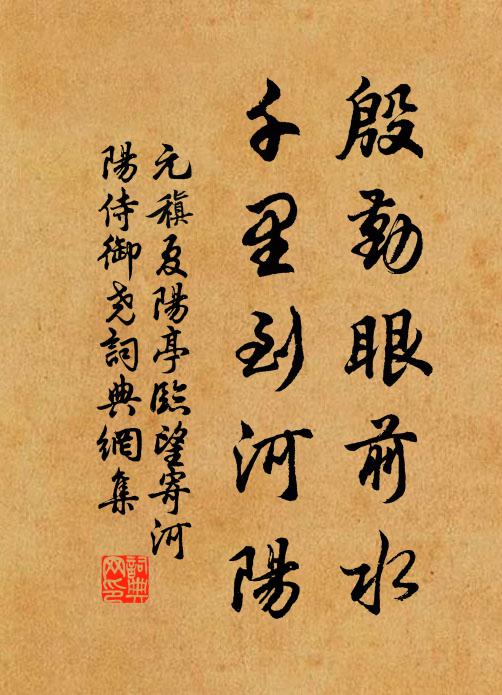 殷勤眼前水
千里到河陽
元稹夏陽亭臨望寄河
陽侍御堯詞典網集
詞典
网印